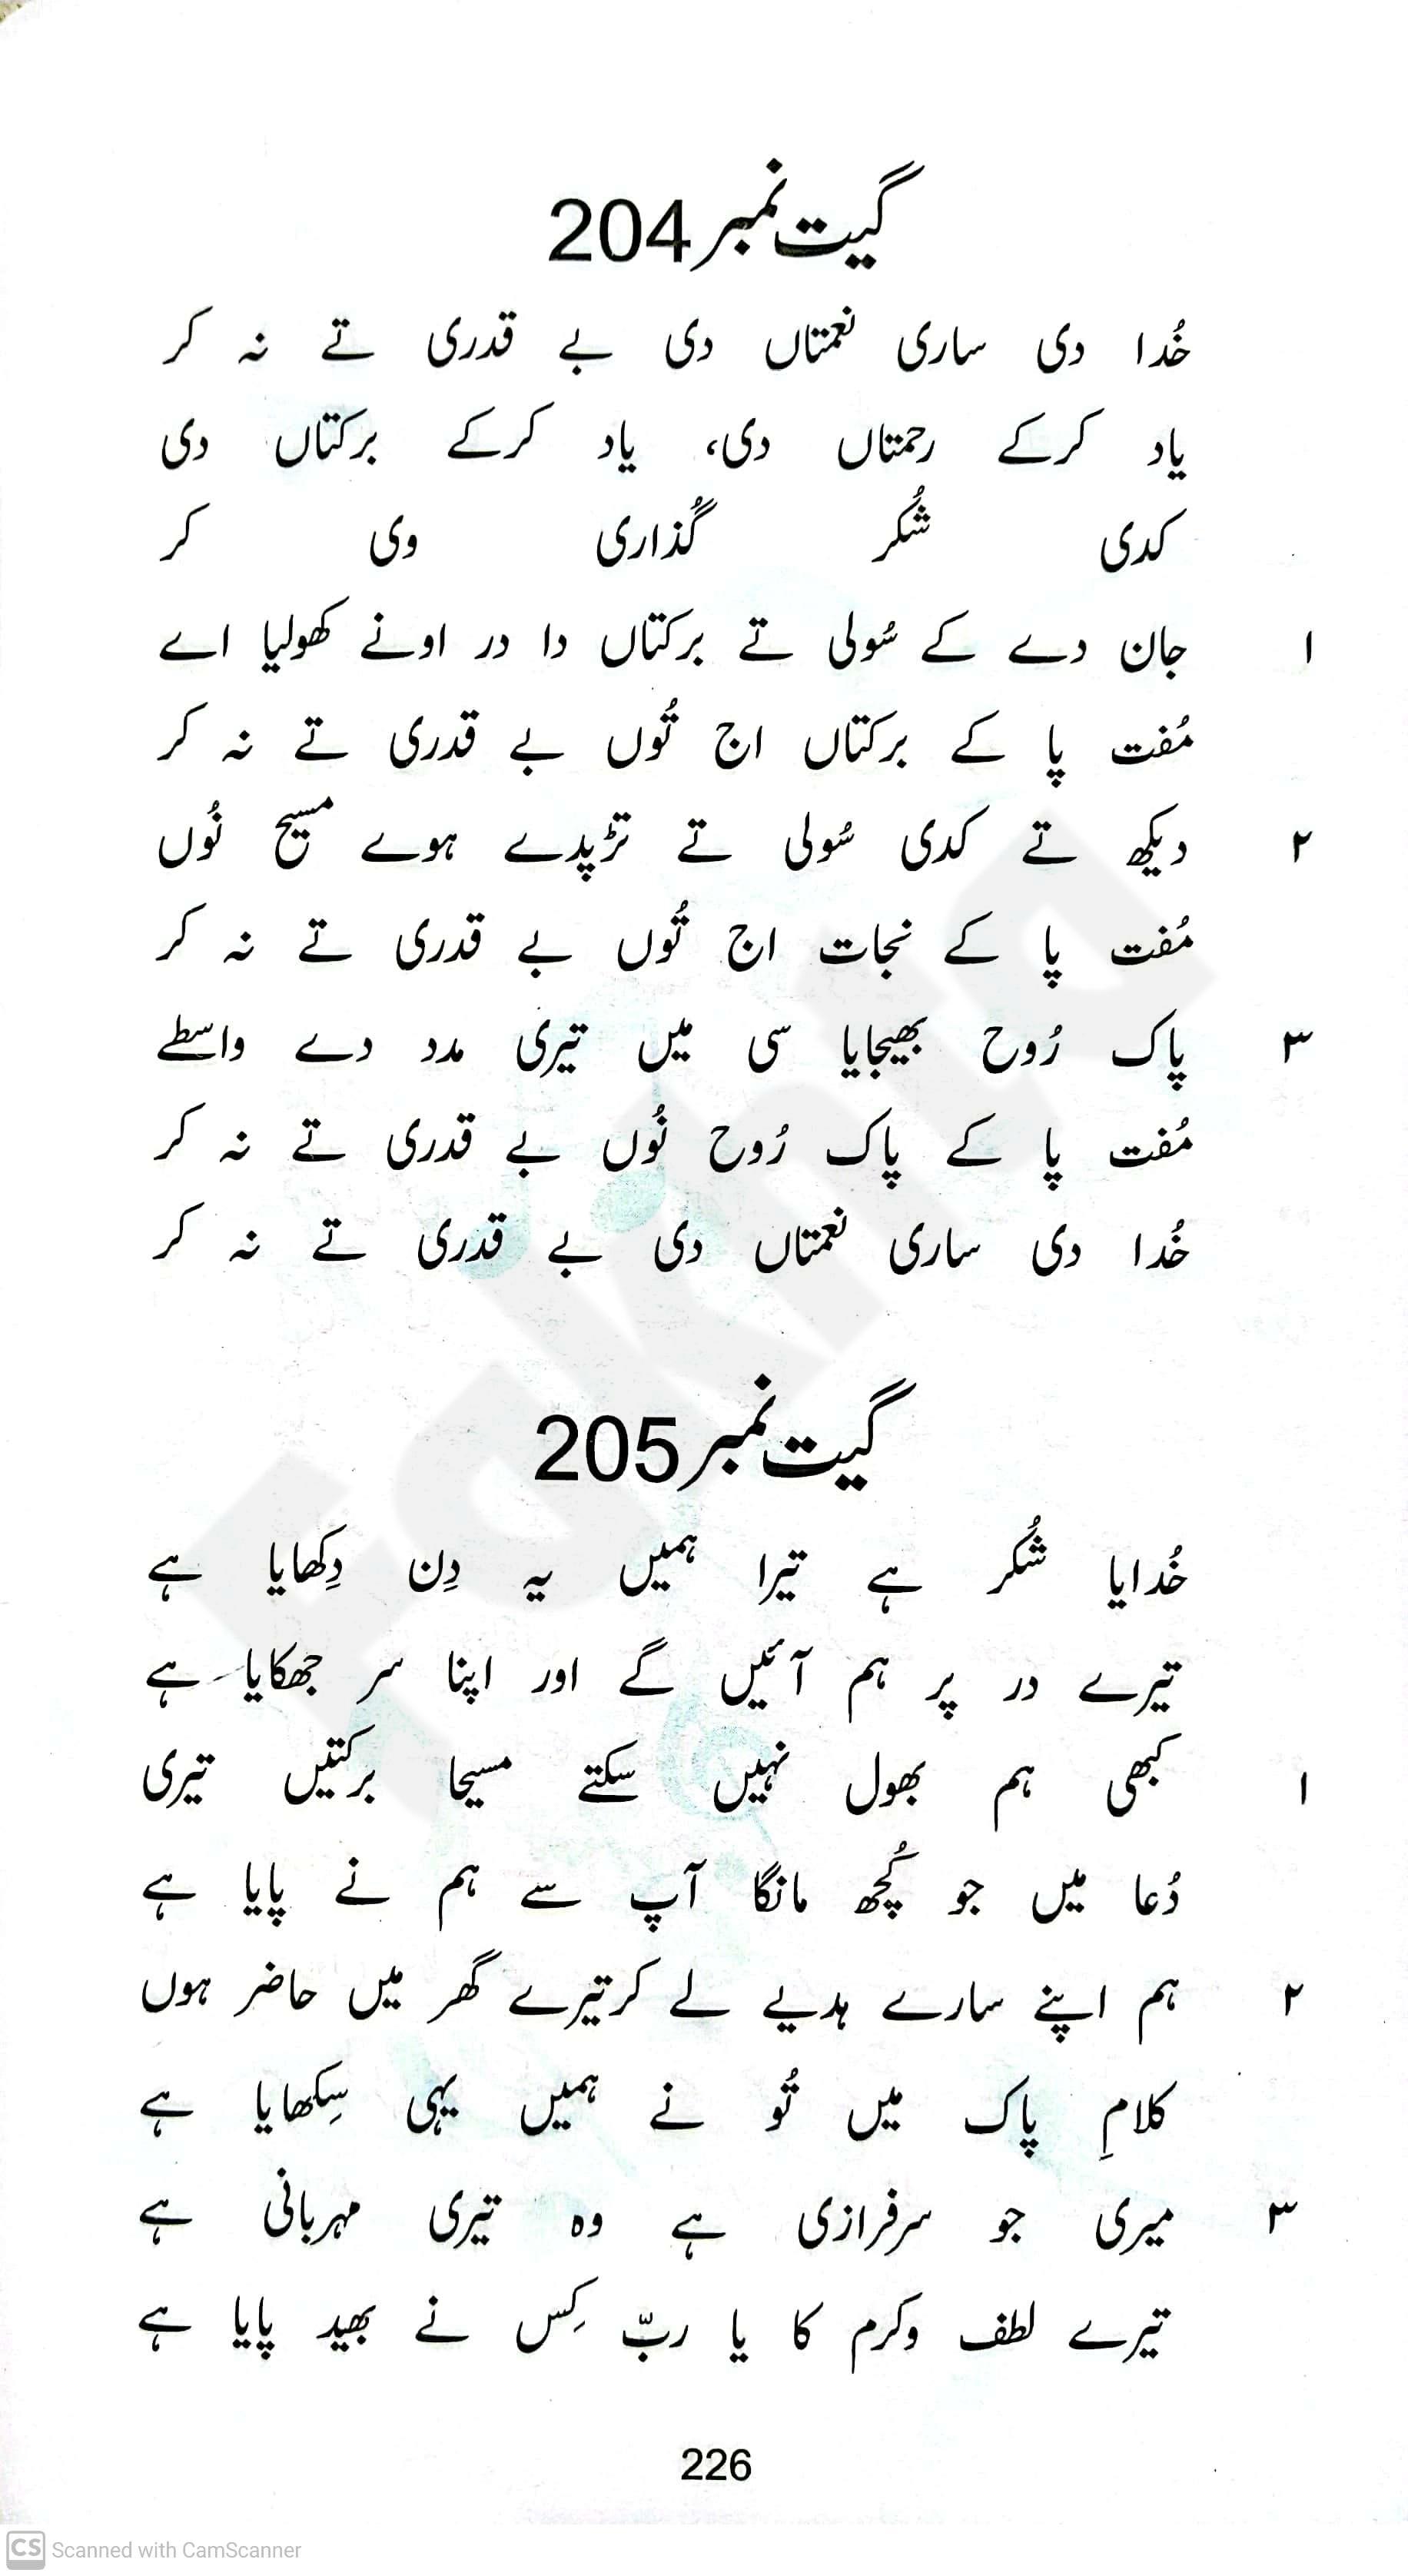 گیت نمبر 204
خُدا دی ساری نعمتاں دی بے قدری تے نہ کر
یاد کرکے رحمتاں دی، یاد کرکے برکتاں دی
کدی شُکر گُذاری وی کر
۱ جان دے کے سُولی تے برکتاں دا در اونے کھولیا اے
مُفت پا کے برکتاں اج تُوں بے قدری تے نہ کر
۲ دیکھ تے کدی سُولی تے تڑپدے ہوے مسیح نُوں
مُفت پا کے نجات اج تُوں بے قدری تے نہ کر
۳ پاک رُوح بھیجایا سی میں تیری مدد دے واسطے
مُفت پا کے پاک رُوح نُوں بے قدری تے نہ کر
خُدا دی ساری نعمتاں دی بے قدری تے نہ کر
گیت نمبر 205
خُدایا شُکر ہے تیرا ہمیں یہ دِن دِکھایا ہے
تیرے در پر ہم آئیں گے اور اپنا سر جھکایا ہے
۱ کبھی ہم بھول نہیں سکتے مسیحا برکتیں تیری
دُعا میں جو کُچھ مانگا آپ سے ہم نے پایا ہے
۲ ہم اپنے سارے ہدیے لے کر تیرے گھر میں حاضر ہوں
کلامِ پاک میں تُو نے ہمیں یہی سِکھایا ہے
۳ میری جو سرفرازی ہے وہ تیری مہربانی ہے
تیرے لطف وکرم کا یا ربّ کِس نے بھید پایا ہے
226
Fakhta
CS Scanned with CamScanner